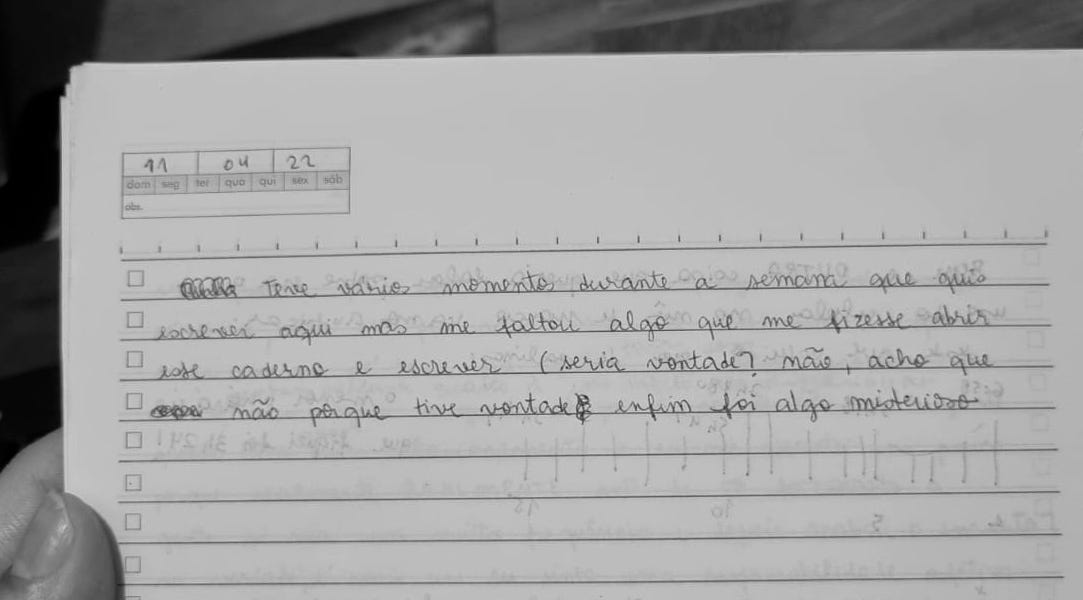 11 04 22
dom seg ter qua qui sex sáb
obs.
Teve vários momentos durante a semana que quis
escrever aqui mas me faltou algo que me fizesse abrir
esse caderno e escrever (seria vontade? não, acho que
não porque tive vontade enfim foi algo misterioso